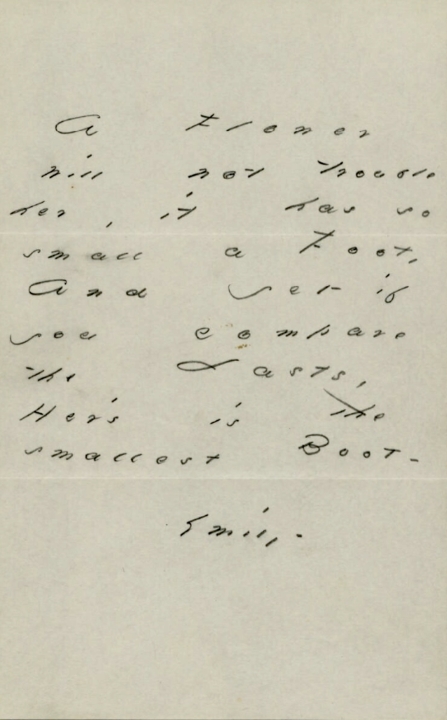 A Flower
will not trouble
her, it has so
small a Foot,
And yet if
you compare
the Lasts,
Her's is the
smallest Boot-
Emily.